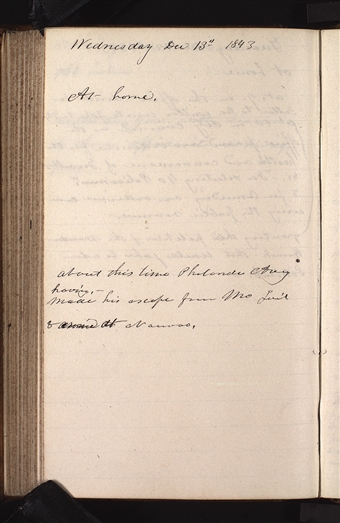 Wednesday Dec 13th 1843
At home.
about this time Philander Avery
having,-
made his escape from Mo
& arrived at Nauvoo.